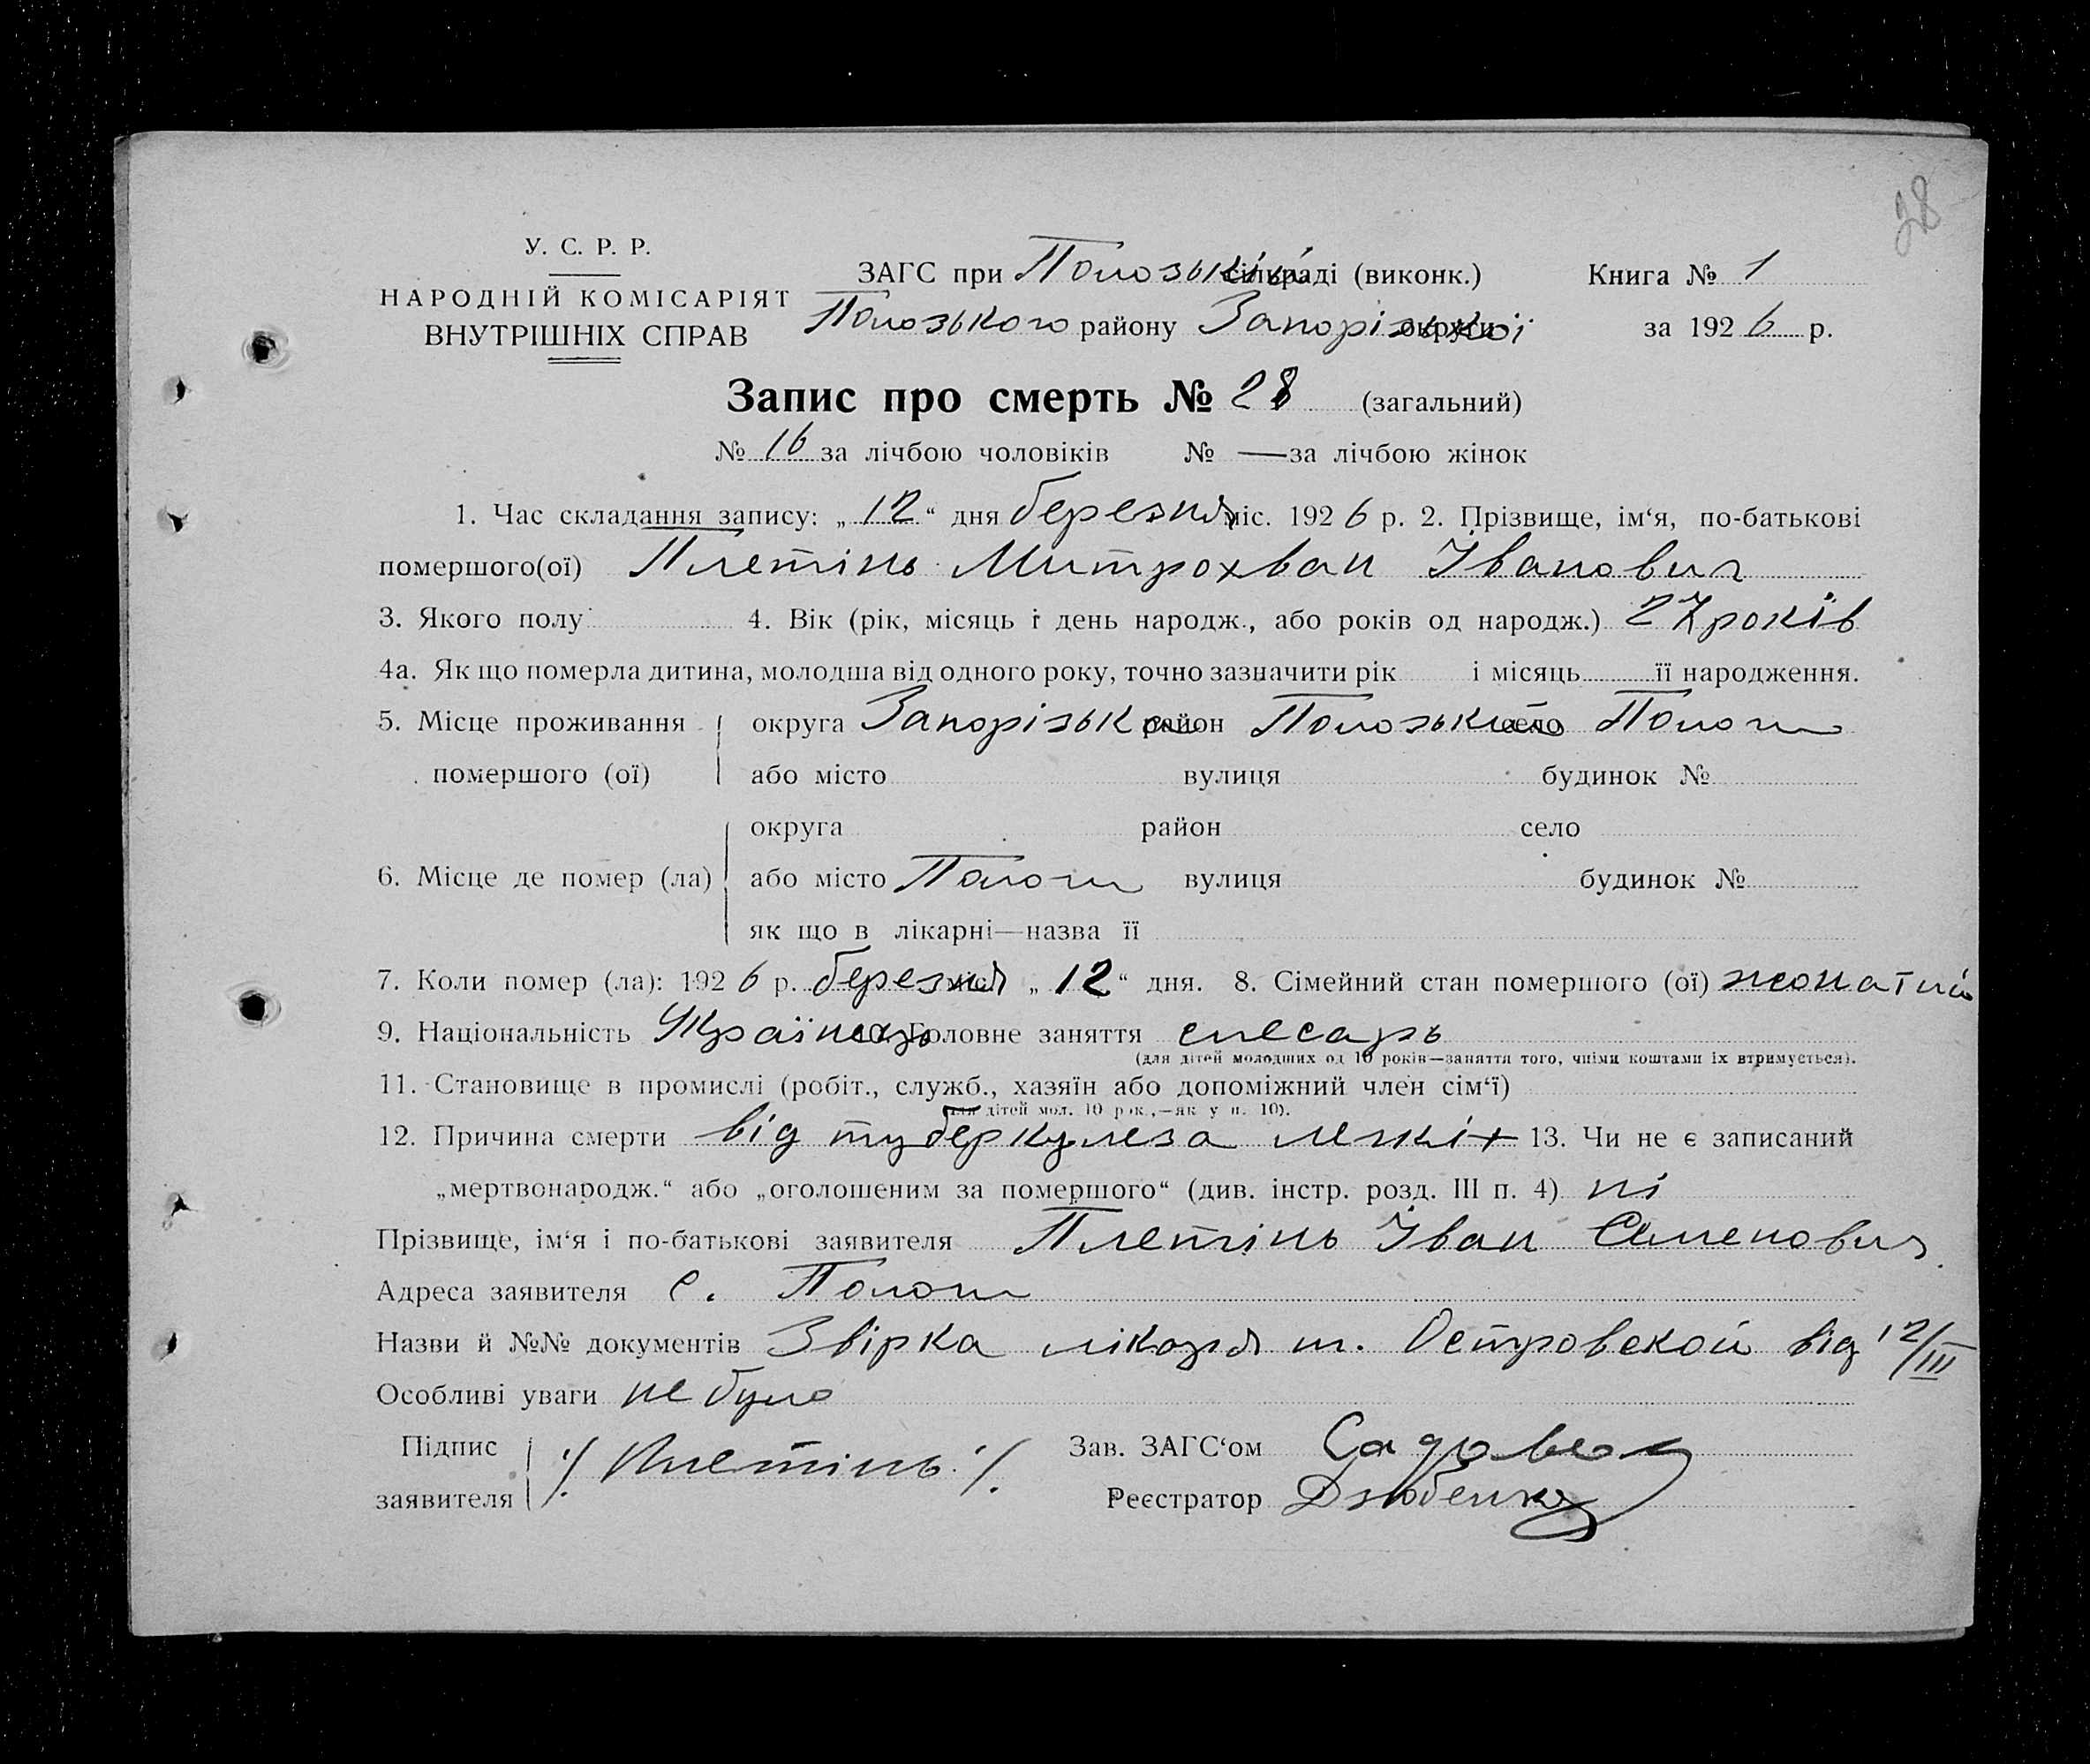 28
У. С. Р. Р.
НАРОДНІЙ КОМІСАРІЯТ
ВНУТРІШНІХ СПРАВ
ЗАГС при Полозській сільраді (виконк.)
Полозького району Запорізької округи
Книга № 1
за 1926 р.
Запис про смерть № 28 (загальний)
№ 16 за лічбою чоловіків № — за лічбою жінок
1. Час складання запису: „12“ дня березня міс. 1926 р. 2. Прізвище, ім‘я, по-батькові
помершого(ої) Плетінь Митрохван Іванович
3. Якого полу 4. Вік (рік, місяць і день народж., або років од народж.) 27 років
4а. Як що померла дитина, молодша від одного року, точно зазначити рік і місяць її народження.
5. Місце проживання округа Запорізька район Полозький село Пологи
помершого (ої) або місто вулиця будинок №
округа район село
6. Місце де помер (ла) або місто Пологи вулиця будинок №
як що в лікарні—назва її
7. Коли помер (ла): 1926 р. березня міс. „12“ дня. 8. Сімейний стан помершого (ої) жонатий
9. Національність Українець 10. Головне заняття слесарь
(для дітей молодших од 10 років—заняття того, чиїми коштами їх втримується).
11. Становище в промислі (робіт., служб., хазяїн або допоміжний член сім‘ї)
(для дітей мол. 10 рок.,—як у п. 10).
12. Причина смерти від туберкулеза легкіх 13. Чи не є записаний
„мертвонародж.“ або „оголошеним за помершого“ (див. інстр. розд. III п. 4) ні
Прізвище, ім‘я і по-батькові заявителя Плетінь Іван Семенович
Адреса заявителя с. Пологи
Назви й №№ документів Звірка лікаря т. Островской від 12/III
Особливі уваги не було
Підпис заявителя ./ Плетінь ./.
Зав. ЗАГС‘ом
Реєстратор Дзюбенко